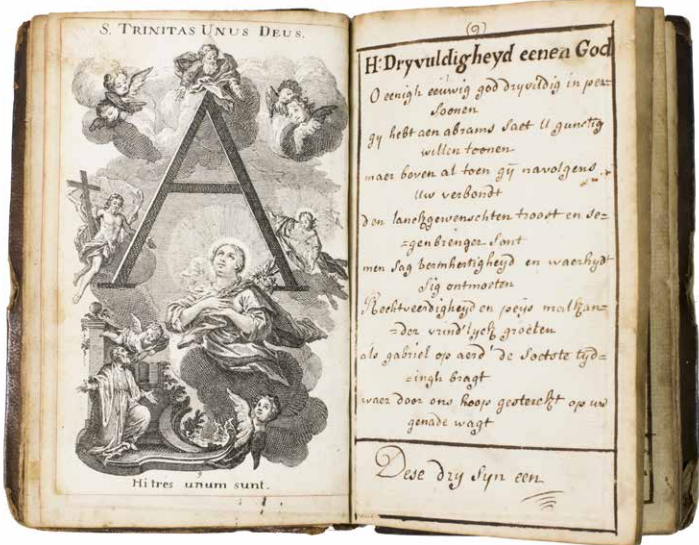 S. TRINITAS UNUS DEUS.
A
9
Hi tres unum sunt.
(9)
H: Dryvuldigheyd eenen God
O eenigh eeuwig god dryvuldig in per=
soonen
gy hebt aen abrams saet U gunstig
willen toonen
maer boven al toen gÿ navolgens
Uw verbondt
den lanckgewenschten troost en se=
=genbrenger sont
men sag bermhertigheyd en waerhydt
sig ontmoeten
Rechtveerdigheyd en peys malkan=
=der vrind'lyck groeten
als gabriel op aerd' de soetste tyd=
=ingh bragt
waer door ons hoop gesterckt op uw
genade wagt
Dese dry syn een